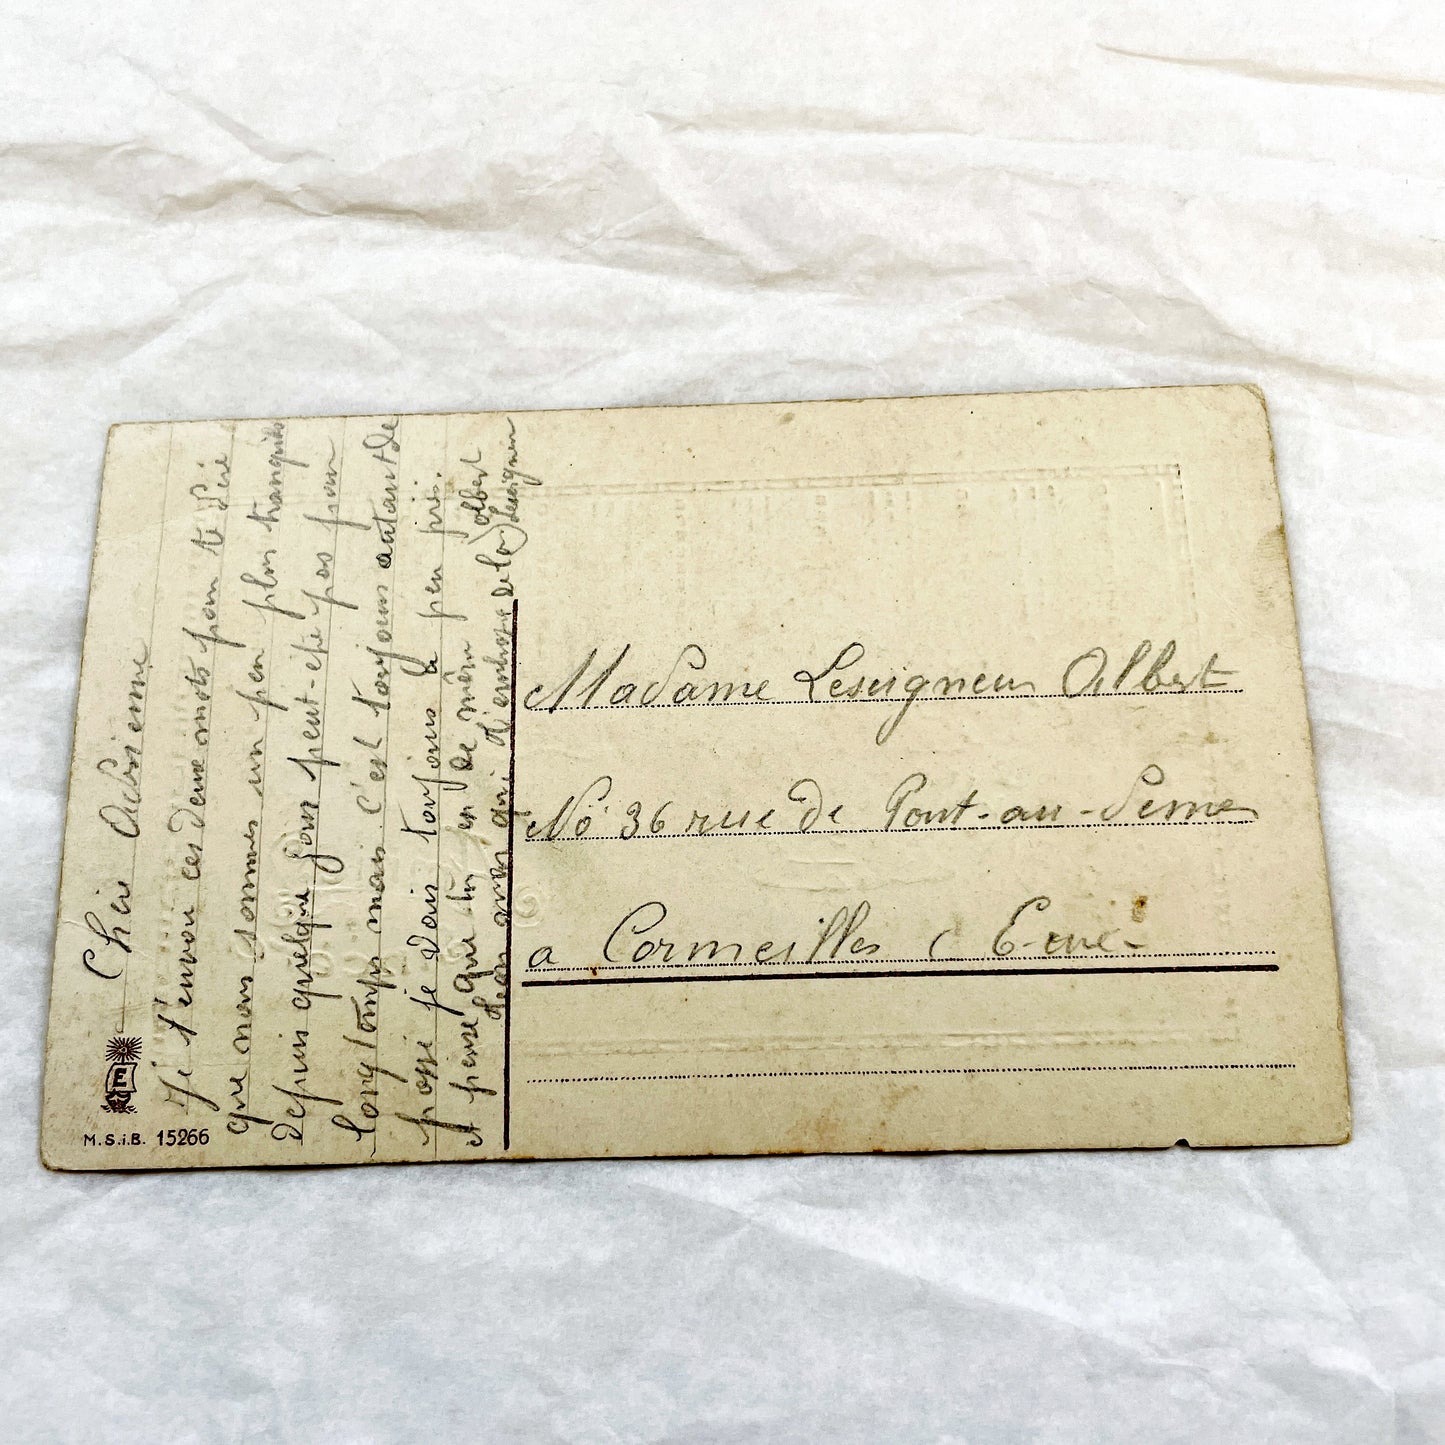 Chere Adrienne
Je t'envoie ces deux mots pour te dire
que nous sommes un peu plus tranquils
depuis quelque jour peut-etre pas pour
longtemps mais c'est toujours autant de
passé je vais toujours à peu pris.
et pense que tu es de même
de la Albert Leseigneur
Madame Leseigneur Albert
No 36 rue de Pont-au-
a Cormeilles Eure
M.S.i.B. 15266